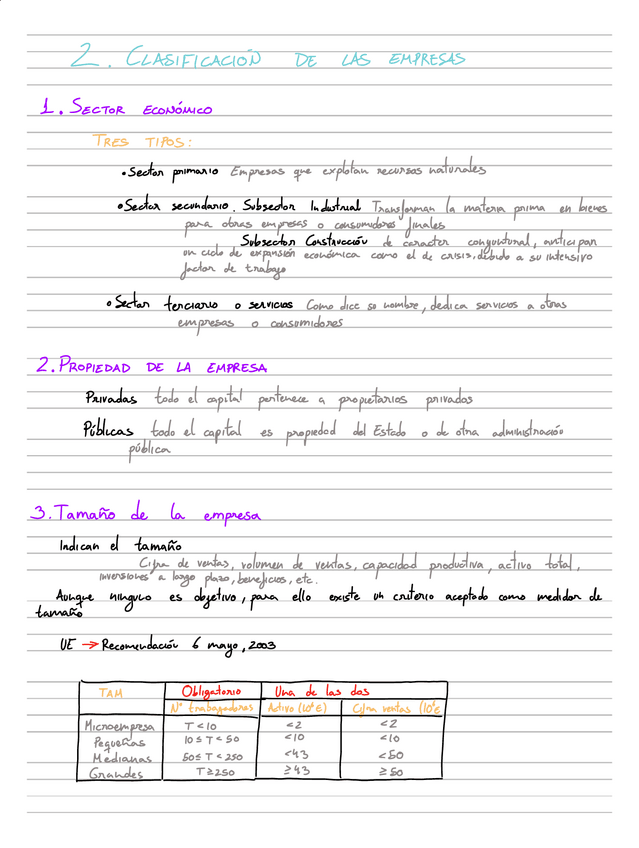 2. CLASIFICACIÓN DE LAS EMPRESAS
1. SECTOR ECONÓMICO
TRES TIPOS:
• Sector primario Empresas que explotan recursos naturales
• Sector secundario. Subsector Industrial Transforman la materia prima en bienes
para otras empresas o consumidores finales
Subsector Construcción de caracter conyuntural, anticipan
un ciclo de expansión económica como el de crisis, debido a su intensivo
factor de trabajo
• Sector terciario o servicios Como dice su nombre, dedica servicios a otras
empresas o consumidores
2. PROPIEDAD DE LA EMPRESA
Privadas todo el capital pertenece a propietarios privados
Públicas todo el capital es propiedad del Estado o de otra administración
pública
3. Tamaño de la empresa
Indican el tamaño
Cifra de ventas, volumen de ventas, capacidad productiva, activo total,
inversiones a largo plazo, beneficios, etc.
Aunque ninguno es objetivo, para ello existe un criterio aceptado como medidor de
tamaño
UE → Recomendación 6 mayo, 2003
TAM Obligatorio Una de las dos
Nº trabajadores Activo (10⁶€) Cifra ventas (10⁶€
Microempresa T < 10 <2 <2
Pequeñas 10 ≤ T < 50 <10 <10
Medianas 50 ≤ T < 250 <43 <50
Grandes T ≥ 250 ≥43 ≥50